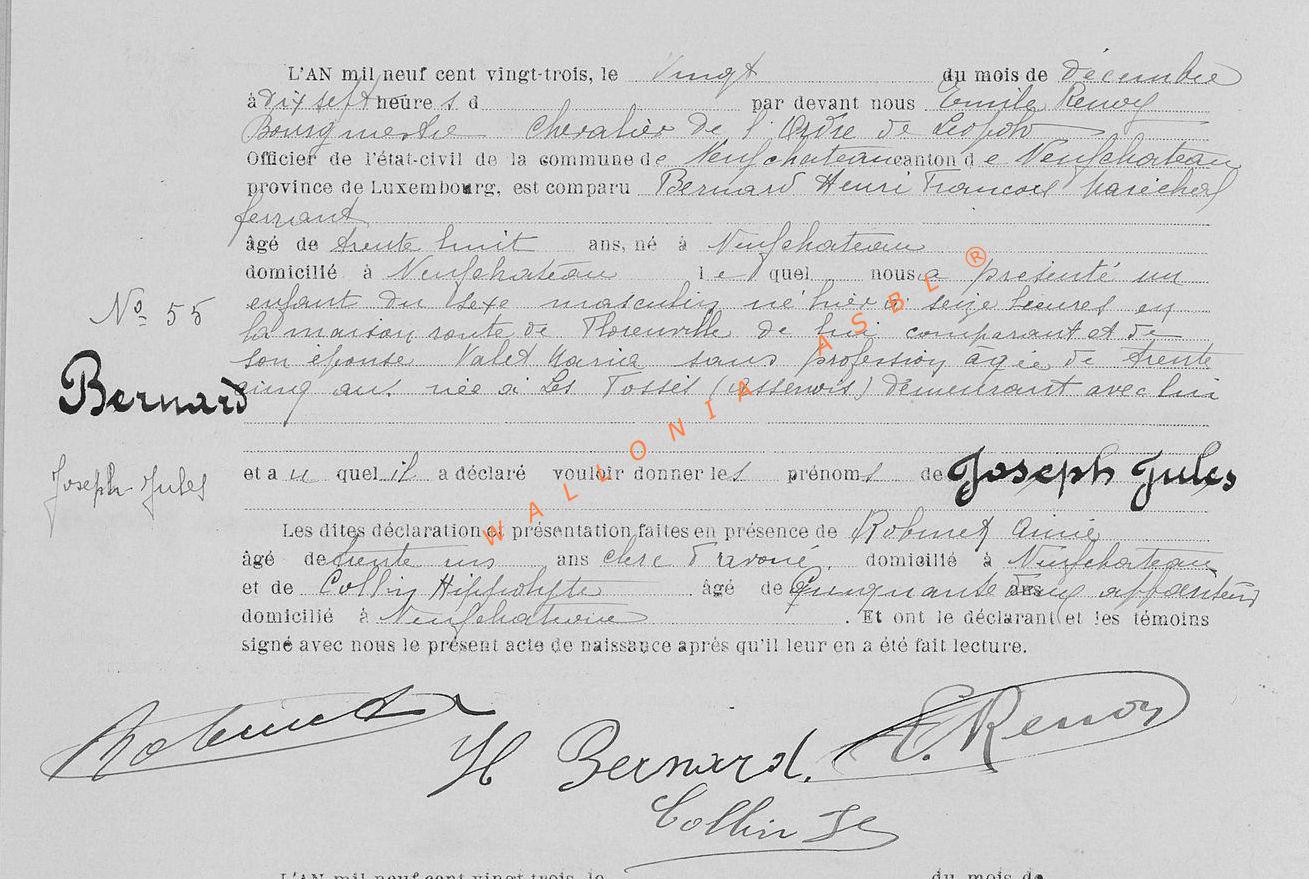 L'AN mil neuf cent vingt-trois, le vingt du mois de décembre
à dix sept heures d par devant nous Emile Renoy
Bourgmestre Chevalier de l'Ordre de Léopold
Officier de l'état-civil de la commune de Neufchateau canton de Neufchateau
province de Luxembourg, est comparu Bernard Henri Francois Maréchal
ferrant
âgé de trente huit ans, né à Neufchateau
domicilié à Neufchateau lequel nous a présenté un
enfant du sexe masculin né hier à seize heures en
la maison route de Florenville de lui comparant et de
N° 55
son épouse Valet Maria sans profession agée de trente
Bernard
cinq ans née à Les Fossés (Assenois) demeurant avec lui
et au quel il a déclaré vouloir donner les prénoms de Joseph Jules
Joseph Jules
Les dites déclaration et présentation faites en présence de Robinet Aimé
âgé de trente un ans clerc d'avoué, domicilié à Neufchateau
et de Collin Hippolyte âgé de Cinquante ans appariteur
domicilié à Neufchateau. Et ont le déclarant et les témoins
signé avec nous le présent acte de naissance après qu'il leur en a été fait lecture.
Robinet
H Bernard.
E. Renoy
Collin H
WALLONIA ASBL ®
L'AN mil neuf cent vingt-trois, le du mois de